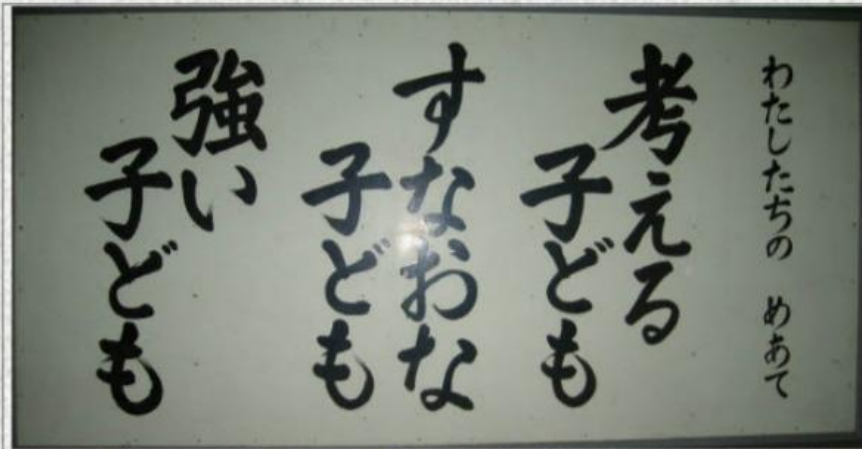 わたしたちの めあて
考える
子ども
すなおな
子ども
強い
子ども